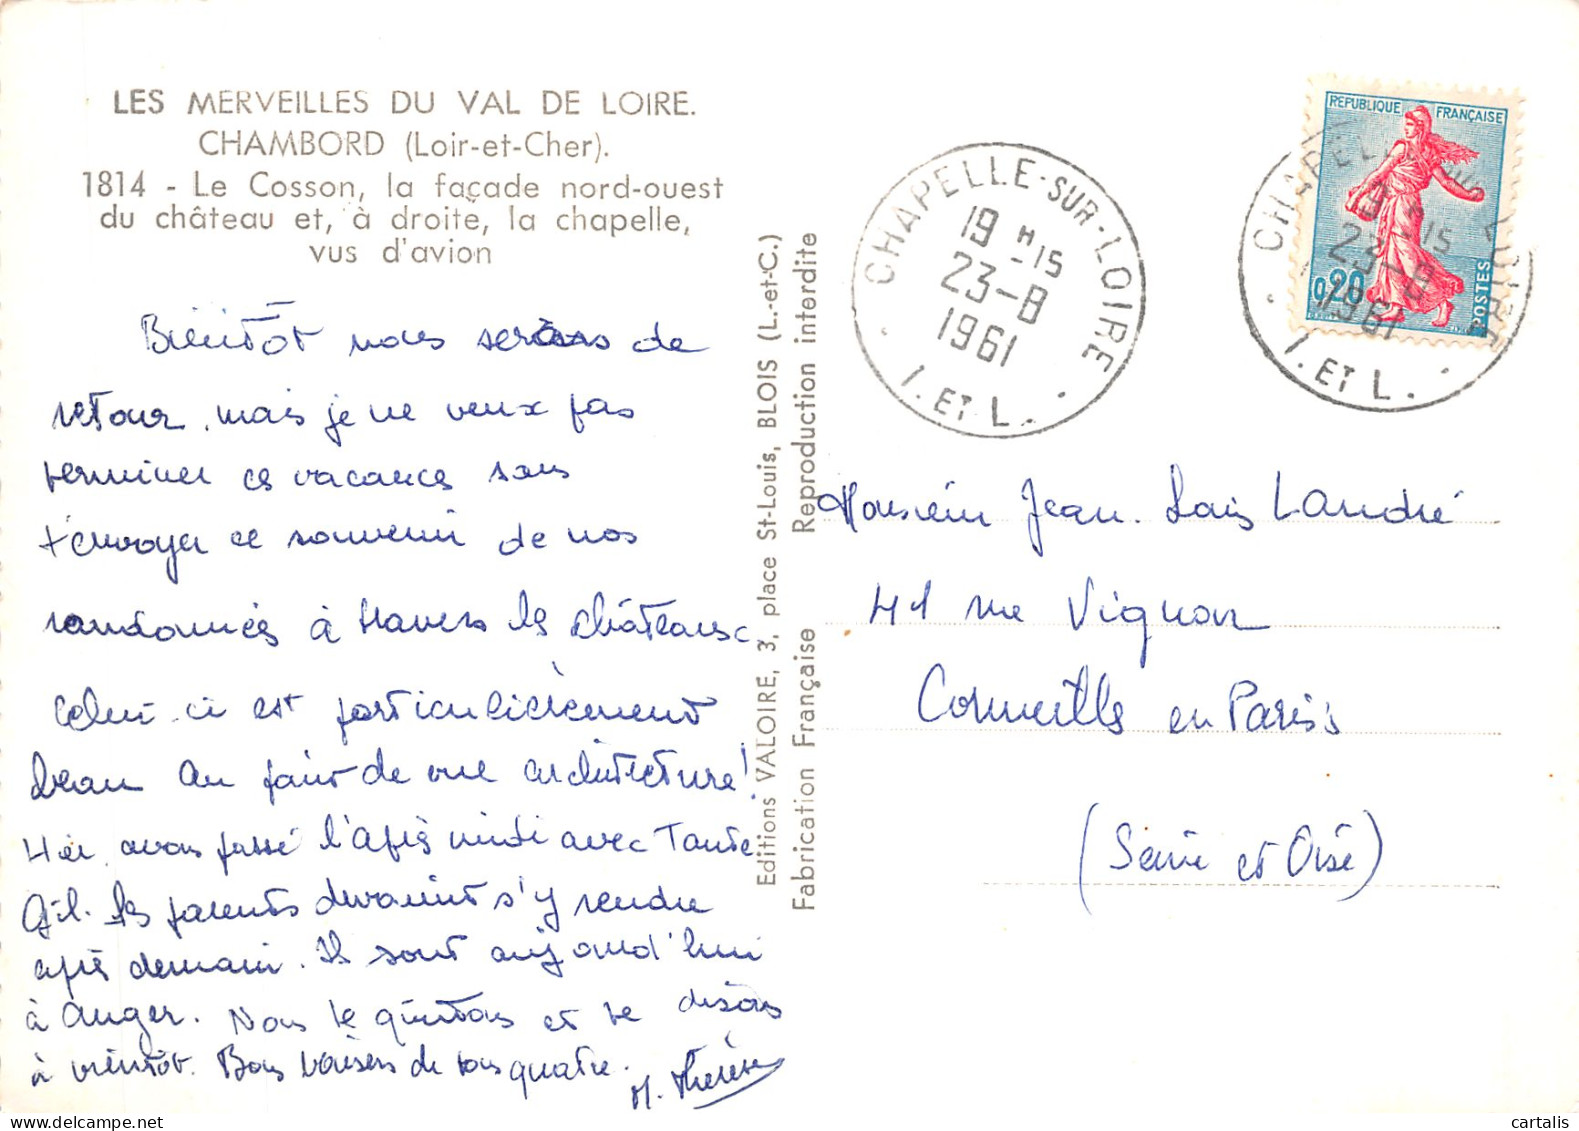 LES MERVEILLES DU VAL DE LOIRE.
CHAMBORD (Loir-et-Cher).
1814 - Le Cosson, la façade nord-ouest
du château et, à droite, la chapelle,
vus d'avion
Bientôt nous serons de
retour, mais je ne veux pas
terminer ces vacances sans
t'envoyer ce souvenir de nos
randonnées à travers les châteaux
Celui-ci est particulièrement
beau au point de vue architecture!
Hier, avons passé l'après midi avec Tante
Gil. Les parents devaient s'y rendre
après demain. Ils sont aujourd'hui
à Anger. Nous te quittons et te disons
à bientôt. Bons baisers de tous quatre.
M. Thérèse
Editions VALOIRE, 3, place St-Louis, BLOIS (L.-et-C.)
Fabrication Française Reproduction interdite
CHAPELLE-SUR-LOIRE
19 H -15
23-8
1961
I. ET L.
REPUBLIQUE FRANÇAISE
0,20
POSTES
CHAPELLE SUR LOIRE
19 H -15
23-8
1961
I. ET L.
Monsieur Jean. Louis Landré
41 rue Vignon
Cormeilles en Parisis
(Seine et Oise)
cartalis
www.delcampe.net